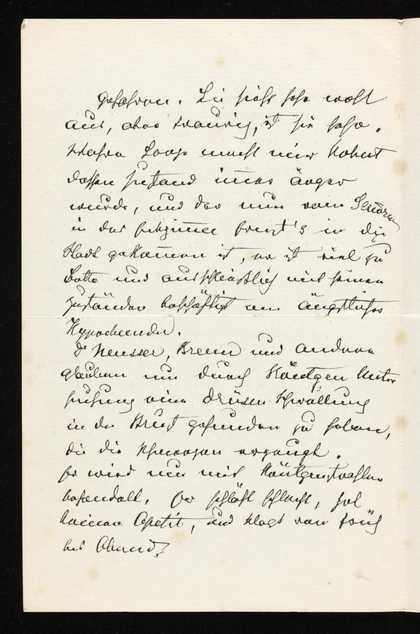 gefahren. Sie sieht sehr wohl
aus, aber traurig, ist sie sehr.
macht mir Robert
dessen Zustand immer ärger
wurde, und der nun vom
in das Franz's in die
Stadt gekommen ist, er ist viel zu
Bette und ausschließlich mit seinen
Zuständen beschäftigt ein ängstlicher
Hypochonder.
Dr Neusser, und andere
glauben nun durch Röntgen Unter
suchung eine Drüsen Schwellung
in der Brust gefunden zu haben,
die die Schmerzen erzeugt.
Er wird nun mit Röntgenstrahlen
behandelt. Er schläft schlecht, hat
keinen Apetit, und klagt von früh
bis Abend.